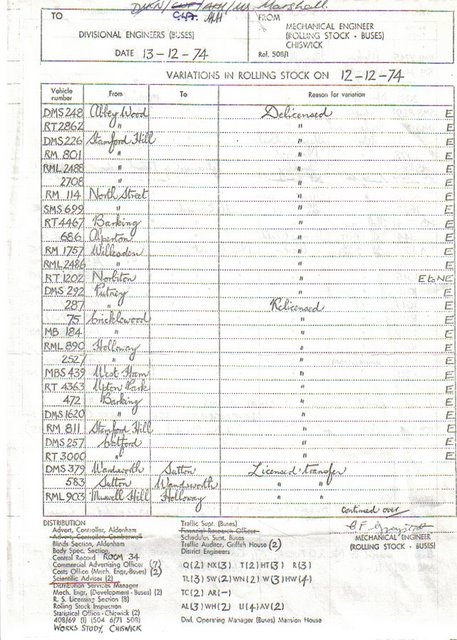 DMRN/ /AKH/Mr Marshall.
TO HH
DIVISIONAL ENGINEERS (BUSES)
DATE 13-12-74
FROM
MECHANICAL ENGINEER
(ROLLING STOCK - BUSES)
CHISWICK
Ref. 508/1
VARIATIONS IN ROLLING STOCK ON 12-12-74
Vehicle number From To Reason for variation
DMS 248 Abbey Wood Delicensed E
RT 2862 " " E
DMS 226 Stamford Hill " E
RM 801 " " E
RML 2488 " " E
2708 " " E
RM 114 North Street " E
SMS 699 " " E
RT 4467 Barking " E
686 Alperton " E
RM 1757 Willesden " E
RML 2486 " " E
RT 1202 Norbiton " E to NE
DMS 292 Putney " E
287 " Relicensed E
75 Cricklewood " E
MB 184 " " E
RML 890 Holloway " E
2527 " " E
MBS 439 West Ham " E
RT 4363 Upton Park " E
472 Barking " E
DMS 1620 " " E
RM 811 Stamford Hill " E
DMS 257 Catford " E
RT 3000 " " E
DMS 379 Wandsworth Sutton Licensed transfer
583 Sutton Wandsworth " "
RML 903 Muswell Hill Holloway " "
continued over
MECHANICAL ENGINEER
(ROLLING STOCK - BUSES)
DISTRIBUTION
Advert. Controller, Aldenham
Advert. Controller Camberwell
Blinds Section, Aldenham
Body Spec. Section,
Control Record ROOM 34
Commercial Advertising Officer (7)
Costs Office (Mech. Engr. Buses) (2)
Scientific Adviser (2)
Distribution Services Manager
Mech. Engr. (Development - Buses) (2)
R. S. Licensing Section (8)
Rolling Stock Inspection
Statistical Office - Chiswick (2)
408/69 (1) 504 6/71 508)
WORKS STUDY, CHISWICK
Traffic Supt. (Buses)
Financial Research Officer
Schedules Supt. Buses
Traffic Auditor, Griffith House (2)
District Engineers
Q(2) NK(3) T(2) HT(3) R(3)
TL(3) SW(2) WN(2) W(3) HW(4)
TC(2) AR(-)
AL(3) WH(2) U(4) AV(2)
Divl. Operating Manager (Buses) Mansion House